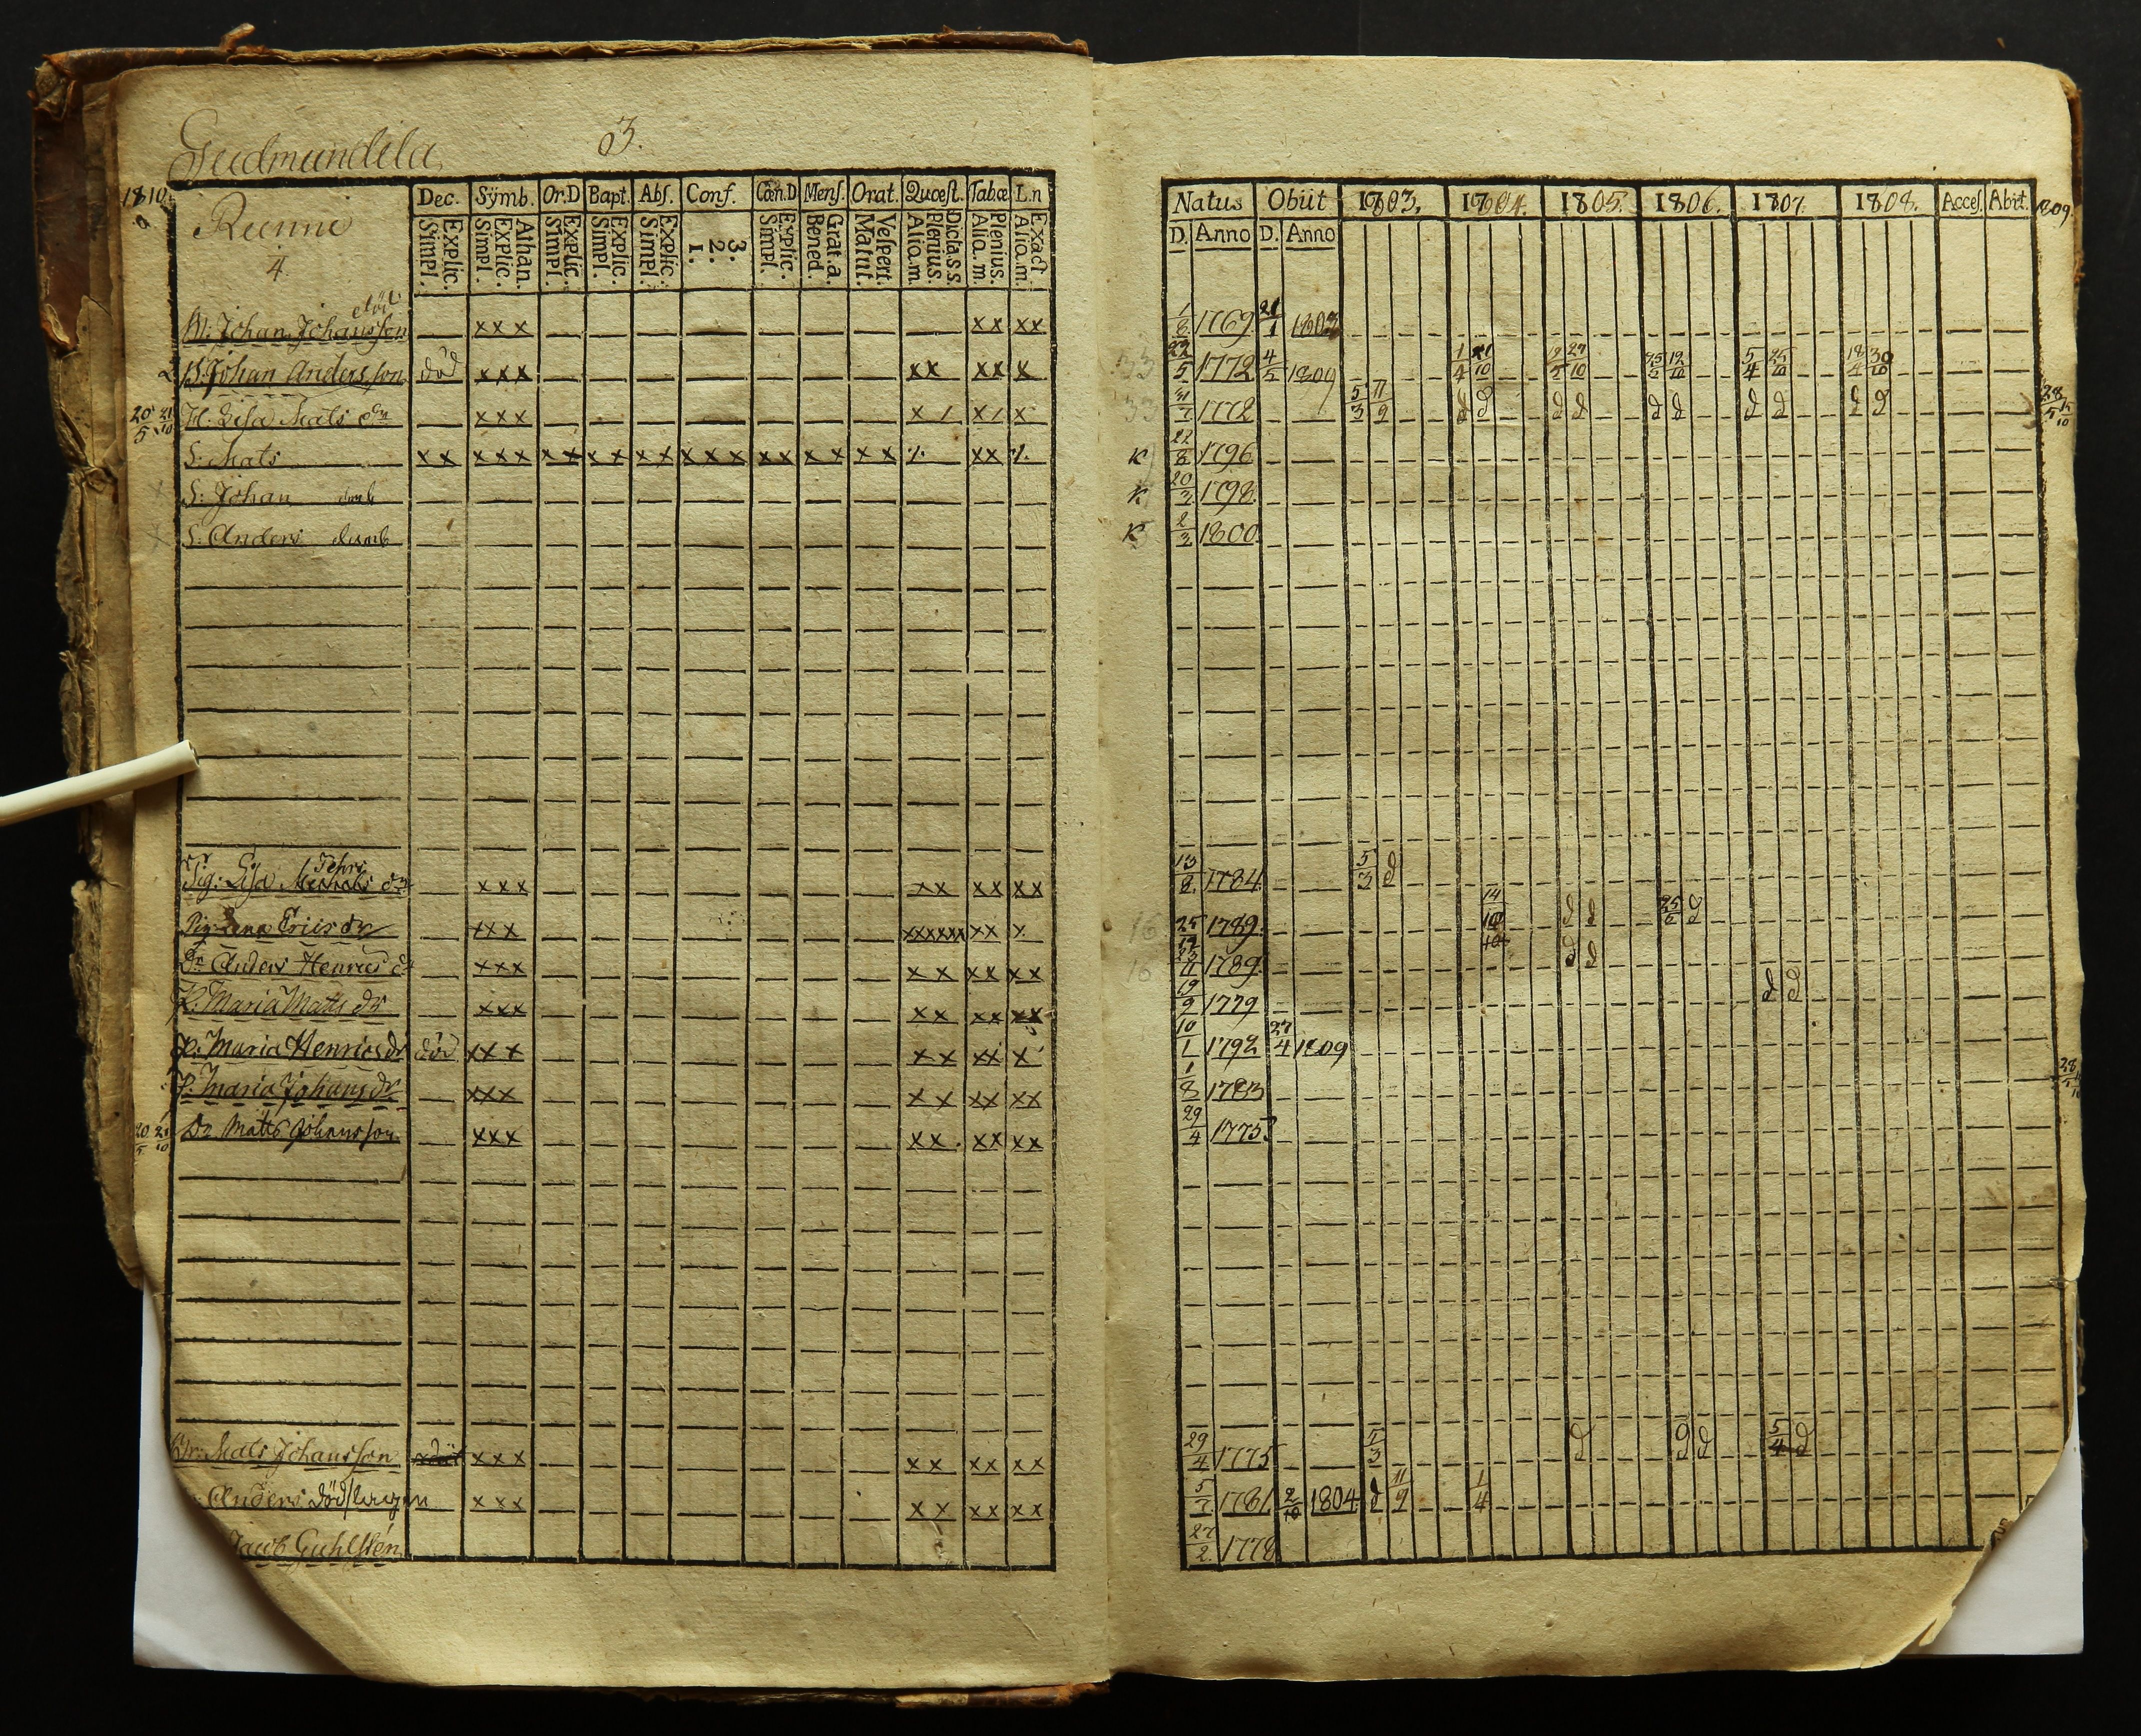 Gudmundila 3.
1810.
Runni
4.
Dec. Sÿmb. Or.D Bapt. Abſ. Conf. Cœn.D Menſ. Orat. Quœſt. Tab.œ L.n
Simpl. Explic. Simpl. Explic. Athan. Simpl. Explic. Simpl. Explic. Simpl. Explic. 1. 2. 3. Simpl. Explic. Bened. Grat.a. Matut. Veſpert. Alio.m Plenius. Dicta.s.s. Alia.m Plenius. Alio.m. Exact
Johan Johansson död xxx xx xx
B. Johan Andersson död xxx xx xx x
20/5 21/10 H. Lisa Mats dr xxx x/ x/ x
S. Mats xx xxx xx xx xx xxx xx xx xx xx
S: Johan dumb
S: Anders dumb
Pig: Lisa Michels dr xxx xx xx xx
Pig: Lena Erics dr xxx xxxxxx xx x
Dr. Anders Henrics xxx xx xx xx
P. Maria Mats dr xxx xx xx xx
P: Maria Henrics dr död xxx xx xx x
P. Maria Johans dr xxx xx xx xx
20/5 21/10 Dr. Matts Johansson xxx xx xx xx
Dr: Mats Johansson xxx xx xx xx
Anders död xxx xx xx xx
Jacob Guhlstén
Natus Obiit 1803. 1804. 1805. 1806. 1807. 1808. Acceſ. Abiit. 1809.
D. Anno D. Anno
1/8 1769 21/1 1803
35 5 1772 4/5 1809 1/4 10 27/10 25/5 19/10 5/4 25/10 18/4 30/10
33 31/7 1772 5/3 11/9 d d d d d d d d d d 28/5
K 22/8 1796
K 20/3 1798
K 2/3 1800
13/8 1784 5/3 d
16 25 1789 14/10 d d 25/5 d
16 11 1789 d d
19/9 1779 d d
10/1 1792 27/4 1809
1/8 1783
29/4 1775
29/4 1775 5/3 d d d 5/4 d
5/7 1781 2/10 1804 d 11/9 1/4
27/2 1778